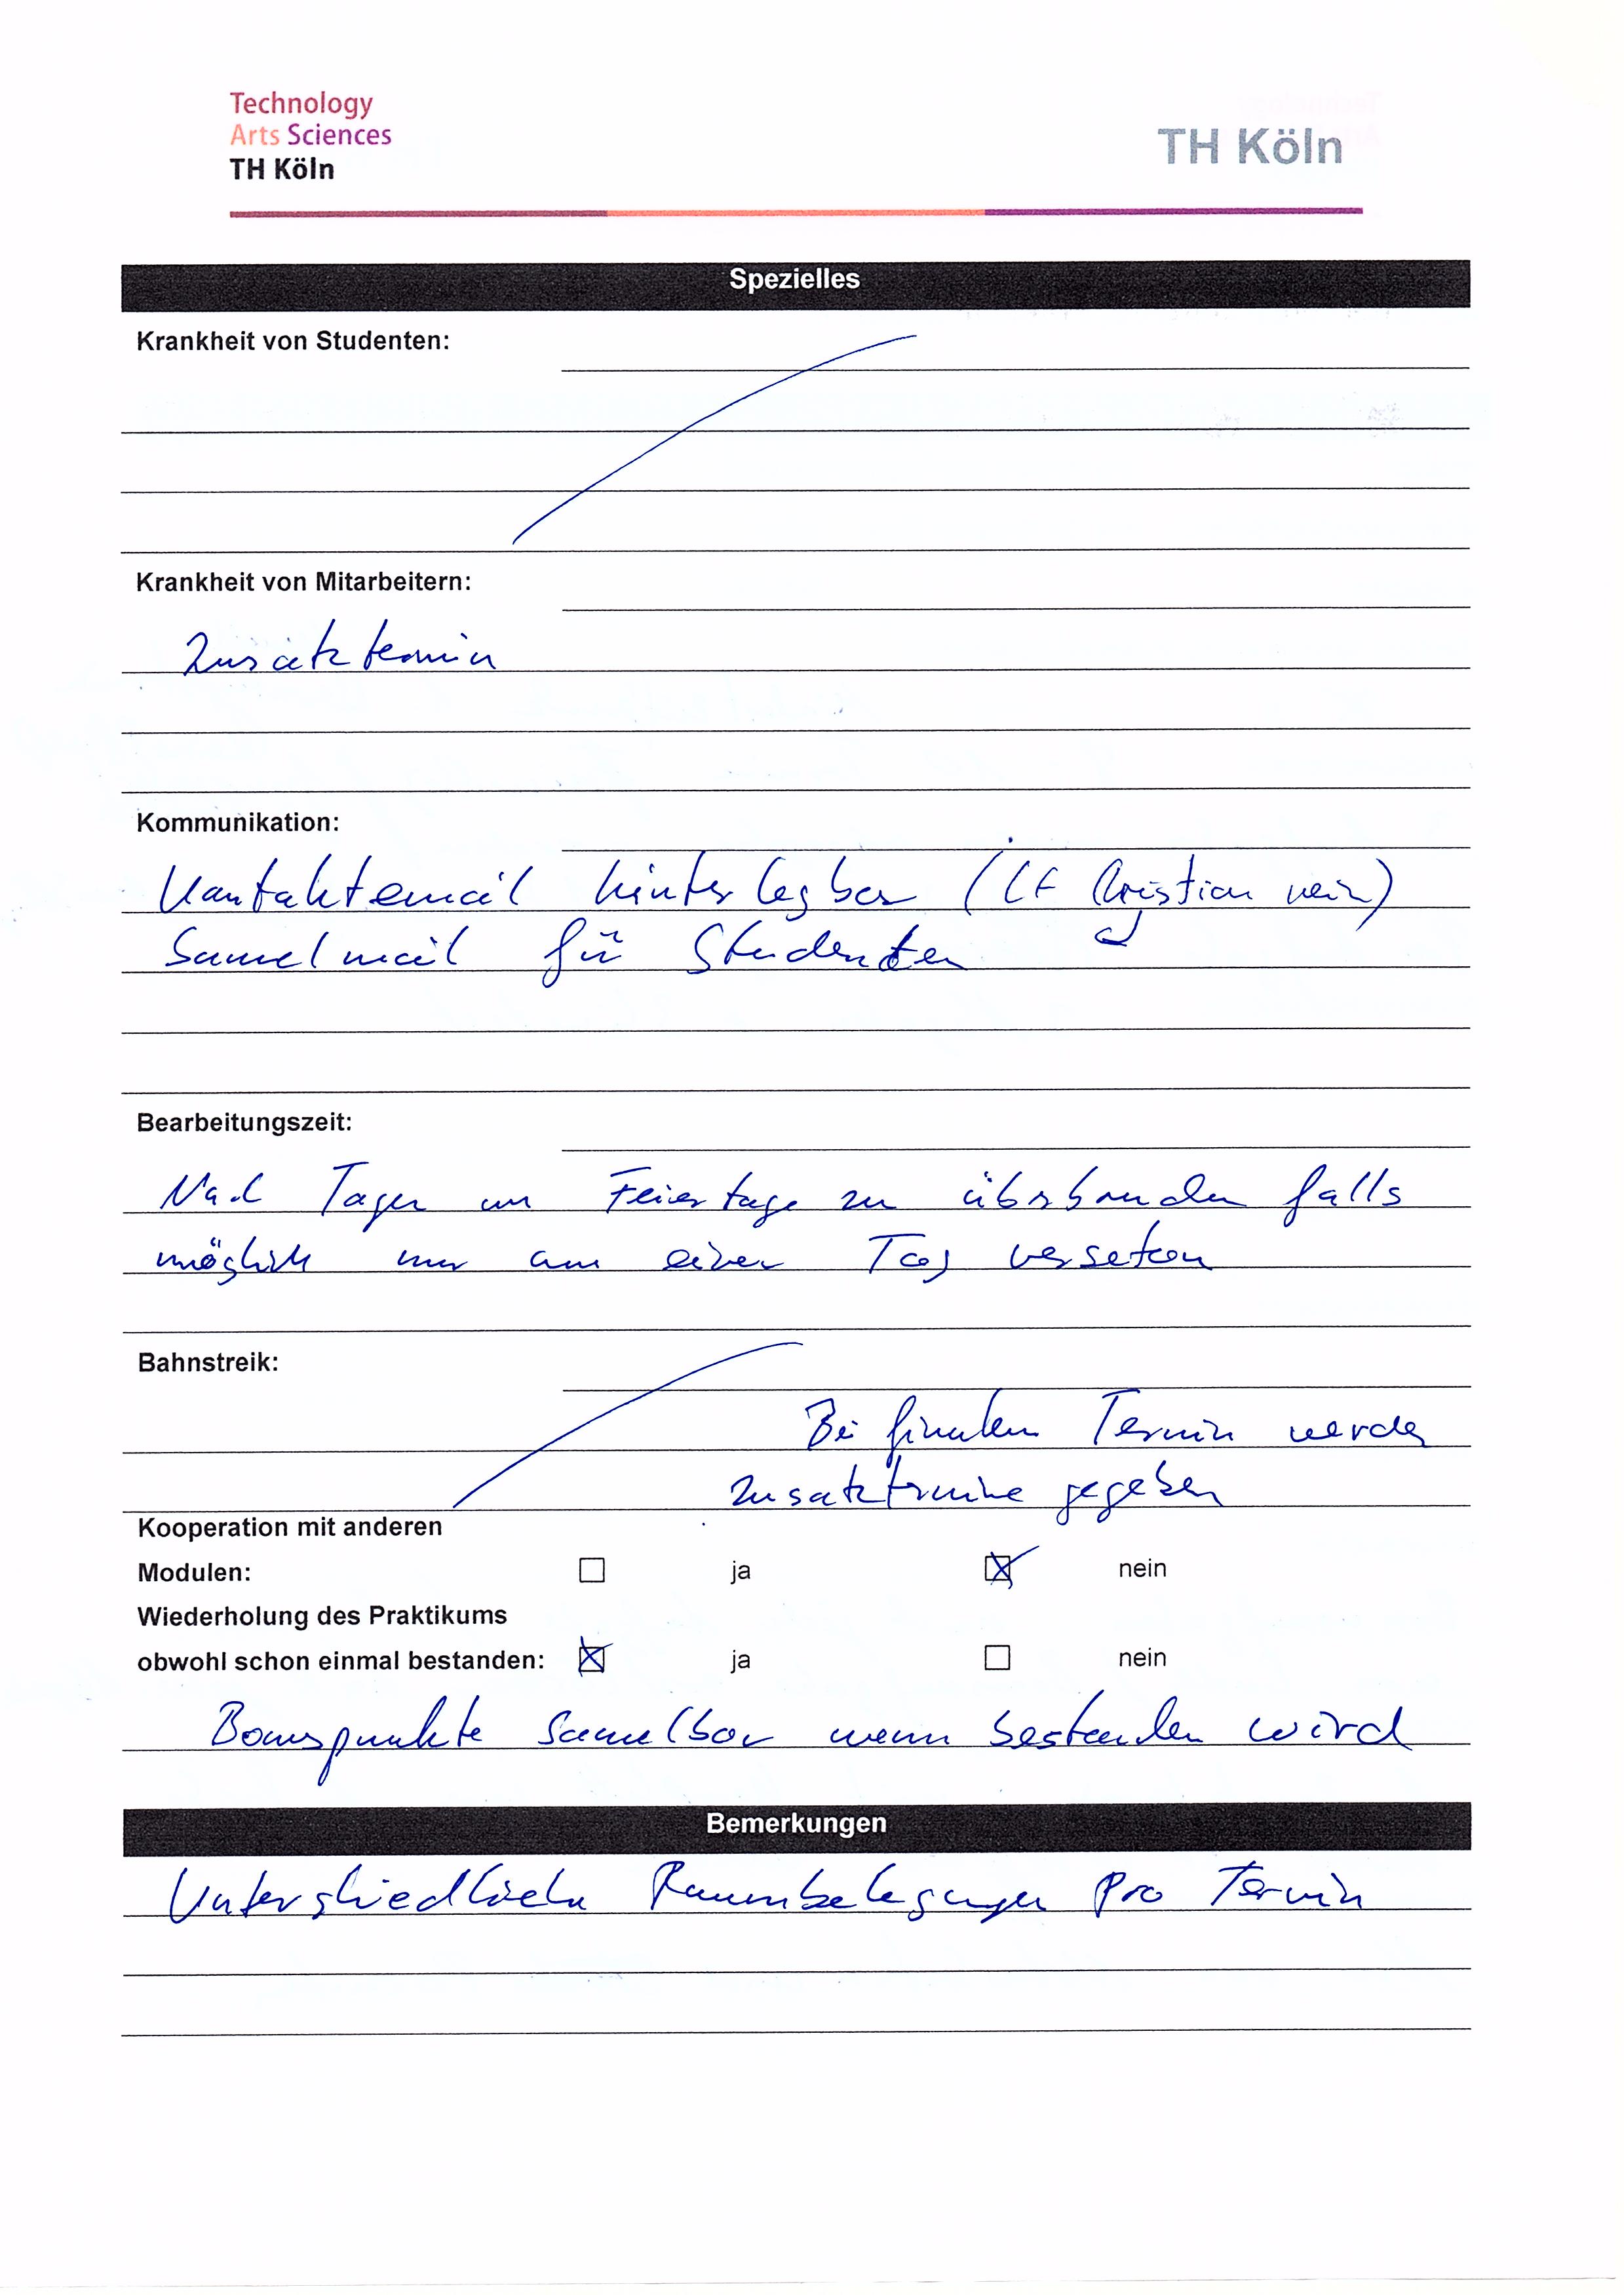 Technology
Arts Sciences
TH Köln
TH Köln
Spezielles
Krankheit von Studenten:
Krankheit von Mitarbeitern:
Zusatztermin
Kommunikation:
Kontaktemail hinterlegbar (Christian nein)
Sammelmail für Studenten
Bearbeitungszeit:
Nach Tagen um Feiertage zu überbrücken falls
möglich nur am einen Tag versetzen
Bahnstreik:
Bei finalem Termin werden
Zusatztermine gegeben
Kooperation mit anderen
Modulen: ja nein
Wiederholung des Praktikums
obwohl schon einmal bestanden: ja nein
Bonuspunkte sammelbar wenn bestanden wird
Bemerkungen
Unterschiedliche Raumbelegungen pro Termin